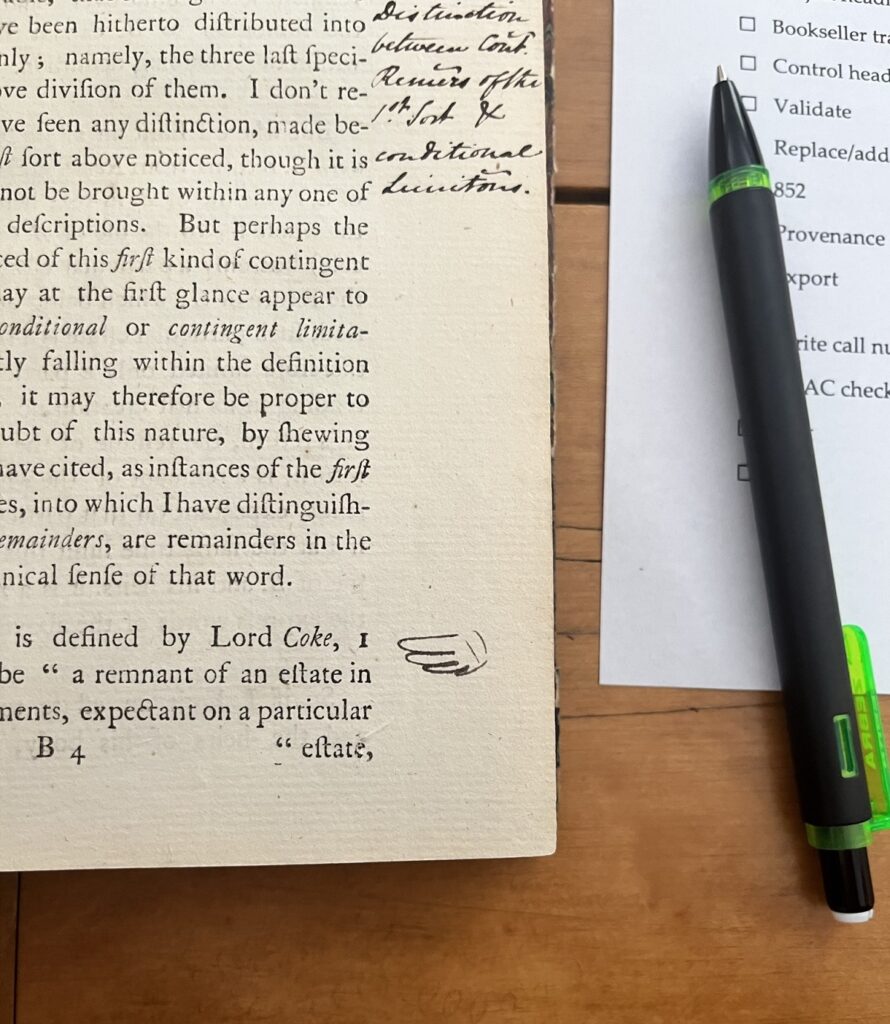 ve been hitherto diſtributed into
nly; namely, the three laſt ſpeci-
ove diviſion of them. I don't re-
ve ſeen any diſtinction, made be-
ſt ſort above noticed, though it is
not be brought within any one of
deſcriptions. But perhaps the
ced of this firſt kind of contingent
ay at the firſt glance appear to
onditional or contingent limita-
tly falling within the definition
, it may therefore be proper to
ubt of this nature, by ſhewing
have cited, as inſtances of the firſt
es, into which I have diſtinguiſh-
emainders, are remainders in the
nical ſenſe of that word.
is defined by Lord Coke, 1
be “ a remnant of an eſtate in
ments, expectant on a particular
B 4 “ eſtate,
Distinction
between Cont.
Remrs of the
1.st Sort &
conditional
Limitons.
Bookseller tra
Control head
Validate
Replace/add
852
Provenance
xport
rite call nu
AC check
ZEBRA